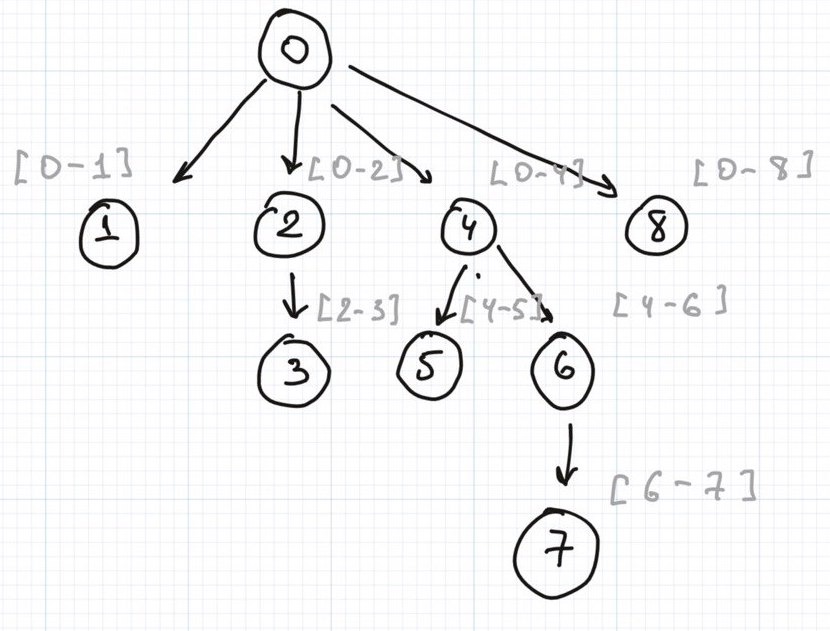 0
[0-1] [0-2] [0-4] [0-8]
1 2 4 8
[2-3] [4-5] [4-6]
3 5 6
[6-7]
7